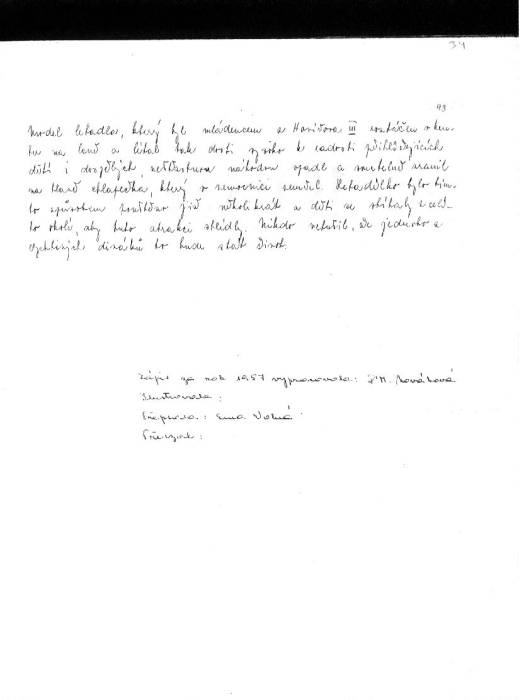 34
93
Model letadla, který byl mládencem z Havířova III roztáčen v ken-
tu na laně a létal tak dosti vysoko k radosti přihlížejících
dětí i dospělých, nešťastnou náhodou spadl a smrtelně zranil
na hlavě chlapečka, který v nemocnici zemřel. Letadélko bylo tím-
to způsobem pouštěno již několikrát a děti se sbíhaly z celé-
ho okolí, aby tuto atrakci shlédly. Nikdo netušil, že jednoho z
zvědavých diváků to bude stát život.
Zápis za rok 1957 vypracovala: M. Nováková
Ilustrovala:
Přepsala: Ema Volná
Převzal: